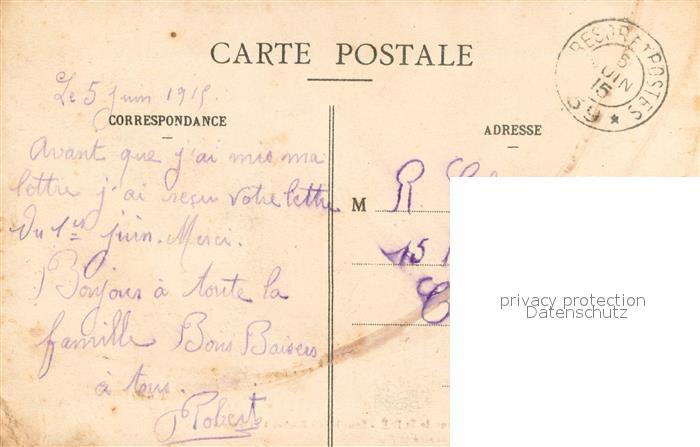 CARTE POSTALE
TRESOR ET POSTES
5
JUIN
15
59 *
Le 5 Juin 1915.
CORRESPONDANCE
ADRESSE
Avant que j'ai mis ma
lettre j'ai reçu votre lettre
du 1er juin. Merci.
Bonjour à toute la
famille Bons Baisers
à tous.
Robert
M R.
15
privacy protection
Datenschutz